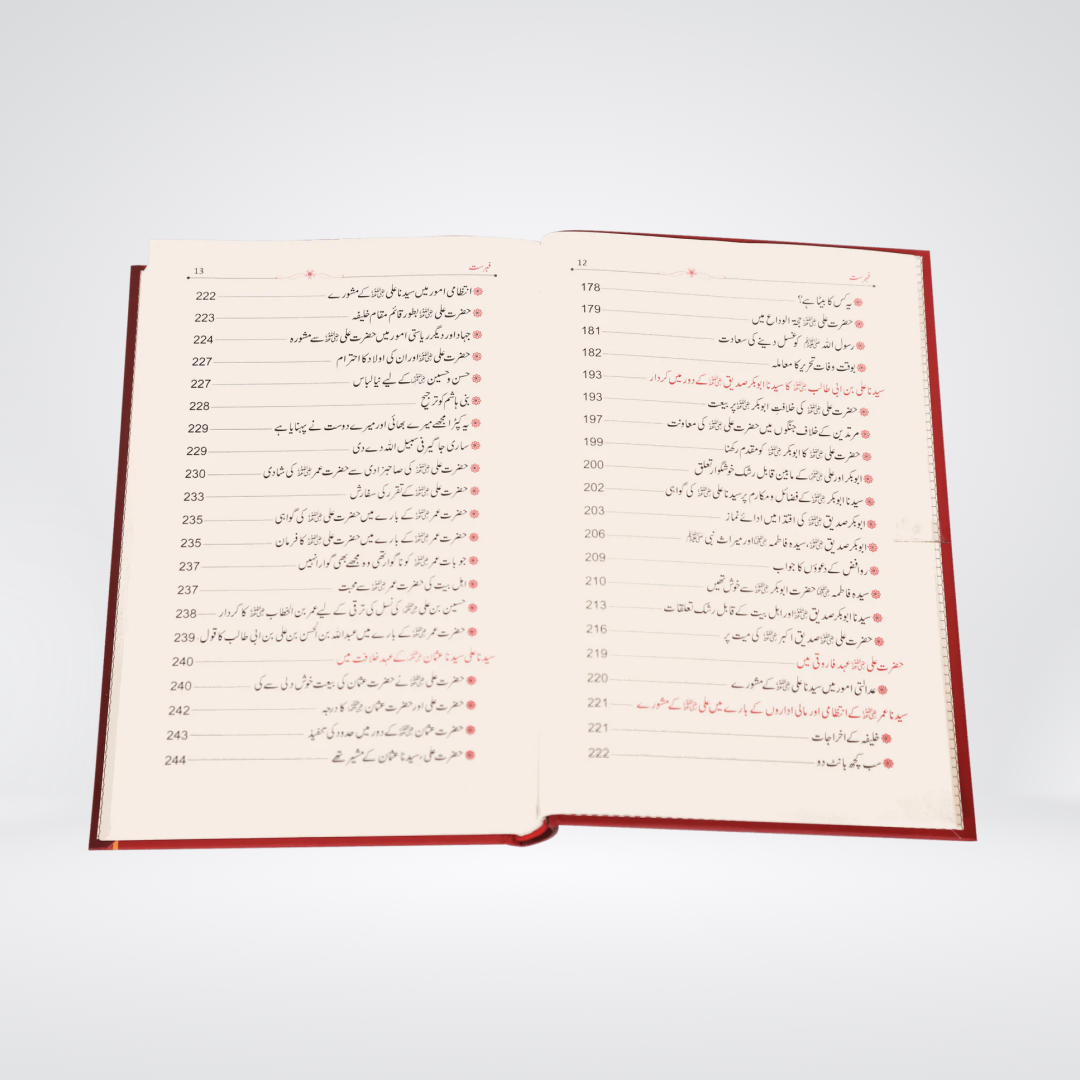 12 فہرست
یہ کس کا بیٹا ہے؟ 178
حضرت علی رضی اللہ عنہ حجۃ الوداع میں 179
رسول اللہ ﷺ کو غسل دینے کی سعادت 181
بوقت وفات تحریر کا معاملہ 182
سیدنا علی بن ابی طالب رضی اللہ عنہ کا سیدنا ابوبکر صدیق رضی اللہ عنہ کے دور میں کردار 193
حضرت علی رضی اللہ عنہ کی خلافتِ ابوبکر رضی اللہ عنہ پر بیعت 193
مرتدین کے خلاف جنگوں میں حضرت علی رضی اللہ عنہ کی معاونت 197
حضرت علی رضی اللہ عنہ کا ابوبکر رضی اللہ عنہ کو مقدم رکھنا 199
ابوبکر اور علی رضی اللہ عنہما کے مابین قابل رشک خوشگوار تعلق 200
سیدنا ابوبکر رضی اللہ عنہ کے فضائل و مکارم پر سیدنا علی رضی اللہ عنہ کی گواہی 202
ابوبکر صدیق رضی اللہ عنہ کی اقتدا میں ادائے نماز 203
ابوبکر صدیق رضی اللہ عنہ، سیدہ فاطمہ رضی اللہ عنہا اور میراث نبی ﷺ 206
روافض کے دعوؤں کا جواب 209
سیدہ فاطمہ رضی اللہ عنہا حضرت ابوبکر رضی اللہ عنہ سے خوش تھیں 210
سیدنا ابوبکر صدیق رضی اللہ عنہ اور اہل بیت کے قابل رشک تعلقات 213
حضرت علی رضی اللہ عنہ صدیق اکبر رضی اللہ عنہ کی میت پر 216
حضرت علی رضی اللہ عنہ عہد فاروقی میں 219
عدالتی امور میں سیدنا علی رضی اللہ عنہ کے مشورے 220
سیدنا عمر رضی اللہ عنہ کے انتظامی اور مالی اداروں کے بارے میں علی رضی اللہ عنہ کے مشورے 221
خلیفہ کے اخراجات 221
سب کچھ بانٹ دو 222
13 فہرست
انتظامی امور میں سیدنا علی رضی اللہ عنہ کے مشورے 222
حضرت علی رضی اللہ عنہ بطور قائم مقام خلیفہ 223
جہاد اور دیگر ریاستی امور میں حضرت علی رضی اللہ عنہ سے مشورہ 224
حضرت علی رضی اللہ عنہ اور ان کی اولاد کا احترام 227
حسن و حسین رضی اللہ عنہما کے لیے نیا لباس 227
بنی ہاشم کو ترجیح 228
یہ کپڑا مجھے میرے بھائی اور میرے دوست نے پہنایا ہے 229
ساری جاگیر فی سبیل اللہ دے دی 229
حضرت علی رضی اللہ عنہ کی صاحبزادی سے حضرت عمر رضی اللہ عنہ کی شادی 230
حضرت علی رضی اللہ عنہ کے تقرر کی سفارش 233
حضرت عمر رضی اللہ عنہ کے بارے میں حضرت علی رضی اللہ عنہ کی گواہی 235
حضرت عمر رضی اللہ عنہ کے بارے میں حضرت علی رضی اللہ عنہ کا فرمان 235
جو بات عمر رضی اللہ عنہ کو ناگوار تھی وہ مجھے بھی گوارا نہیں 237
اہل بیت کی حضرت عمر رضی اللہ عنہ سے محبت 237
حسین بن علی رضی اللہ عنہما کی نسل کی ترقی کے لیے عمر بن الخطاب رضی اللہ عنہ کا کردار 238
حضرت عمر رضی اللہ عنہ کے بارے میں عبداللہ بن الحسن بن علی بن ابی طالب کا قول 239
سیدنا علی سیدنا عثمان رضی اللہ عنہ کے عہد خلافت میں 240
حضرت علی رضی اللہ عنہ نے حضرت عثمان کی بیعت خوش دلی سے کی 240
حضرت علی اور حضرت عثمان رضی اللہ عنہما کا درجہ 242
حضرت عثمان رضی اللہ عنہ کے دور میں حدود کی تنفیذ 243
حضرت علی، سیدنا عثمان کے مشیر تھے 244